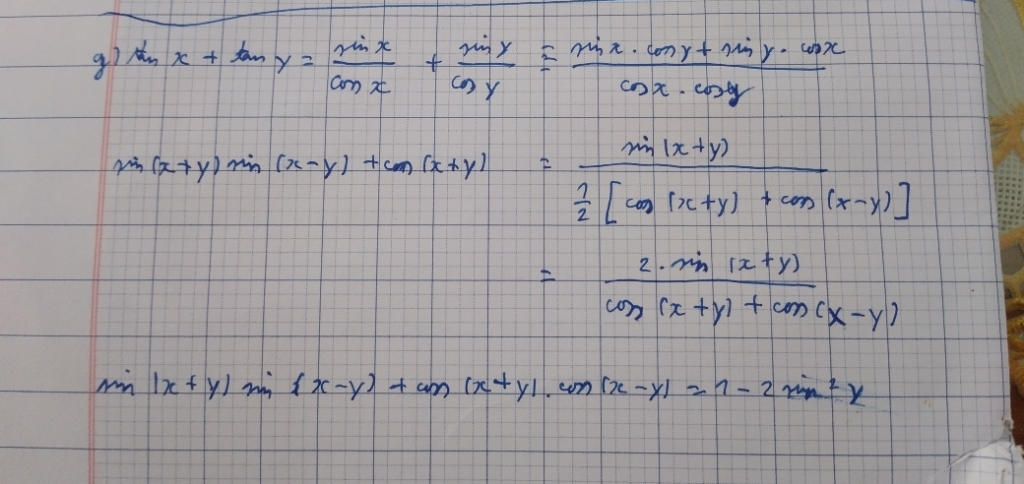 g) tan x + tan y = sin x / cos x + sin y / cos y = (sin x · cos y + sin y · cos x) / (cos x · cos y)
sin (x+y) sin (x-y) + cos (x+y) = sin (x+y) / (1/2 [cos (x+y) + cos (x-y)])
= 2 · sin (x+y) / (cos (x+y) + cos (x-y))
sin (x+y) sin (x-y) + cos (x+y) . cos (x-y) = 1 - 2 sin² y